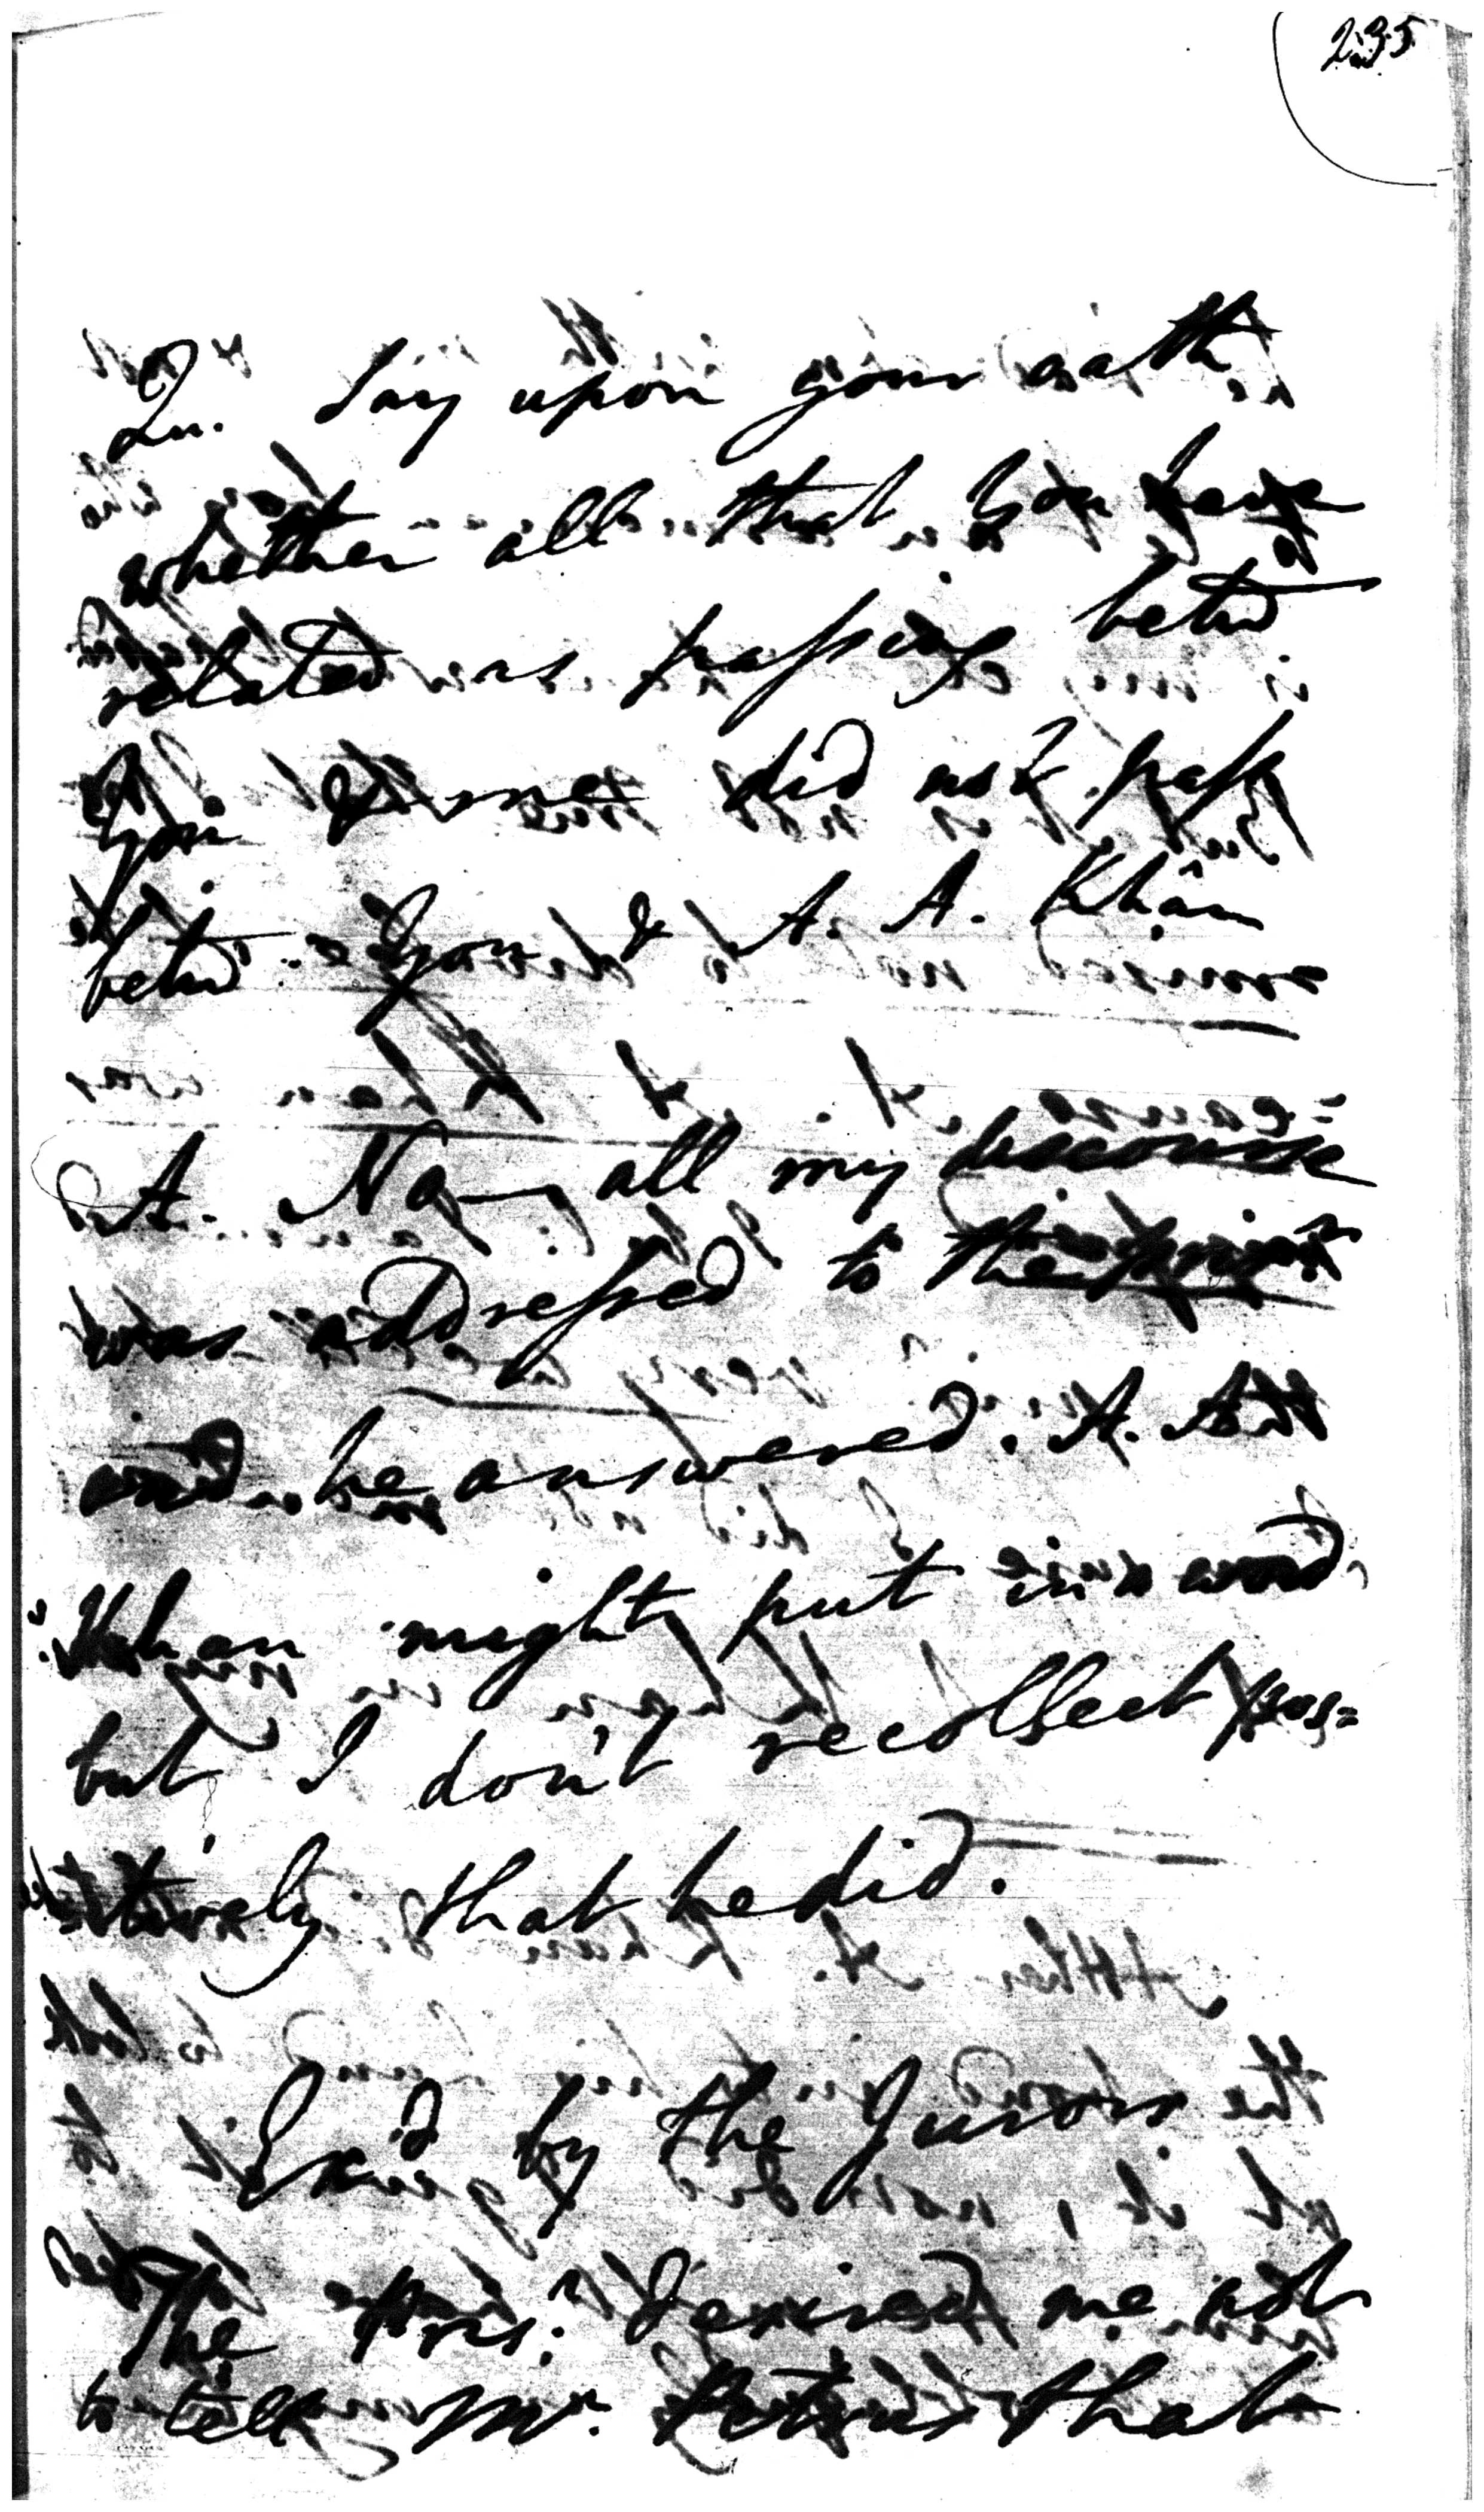 235
Qu. Say upon your oath
whether all that you have
related as passing betw
you & me did not pass
betw. you & A. A. Khân
A. No, all my discourse
was addressed to the prisr
and he answered. A. A
Khan might put in a word
but I don't recollect pos=
tively that he did.
Ex'd by the Jurors
The Prisr desired me not
to tell Mr. Petrus that